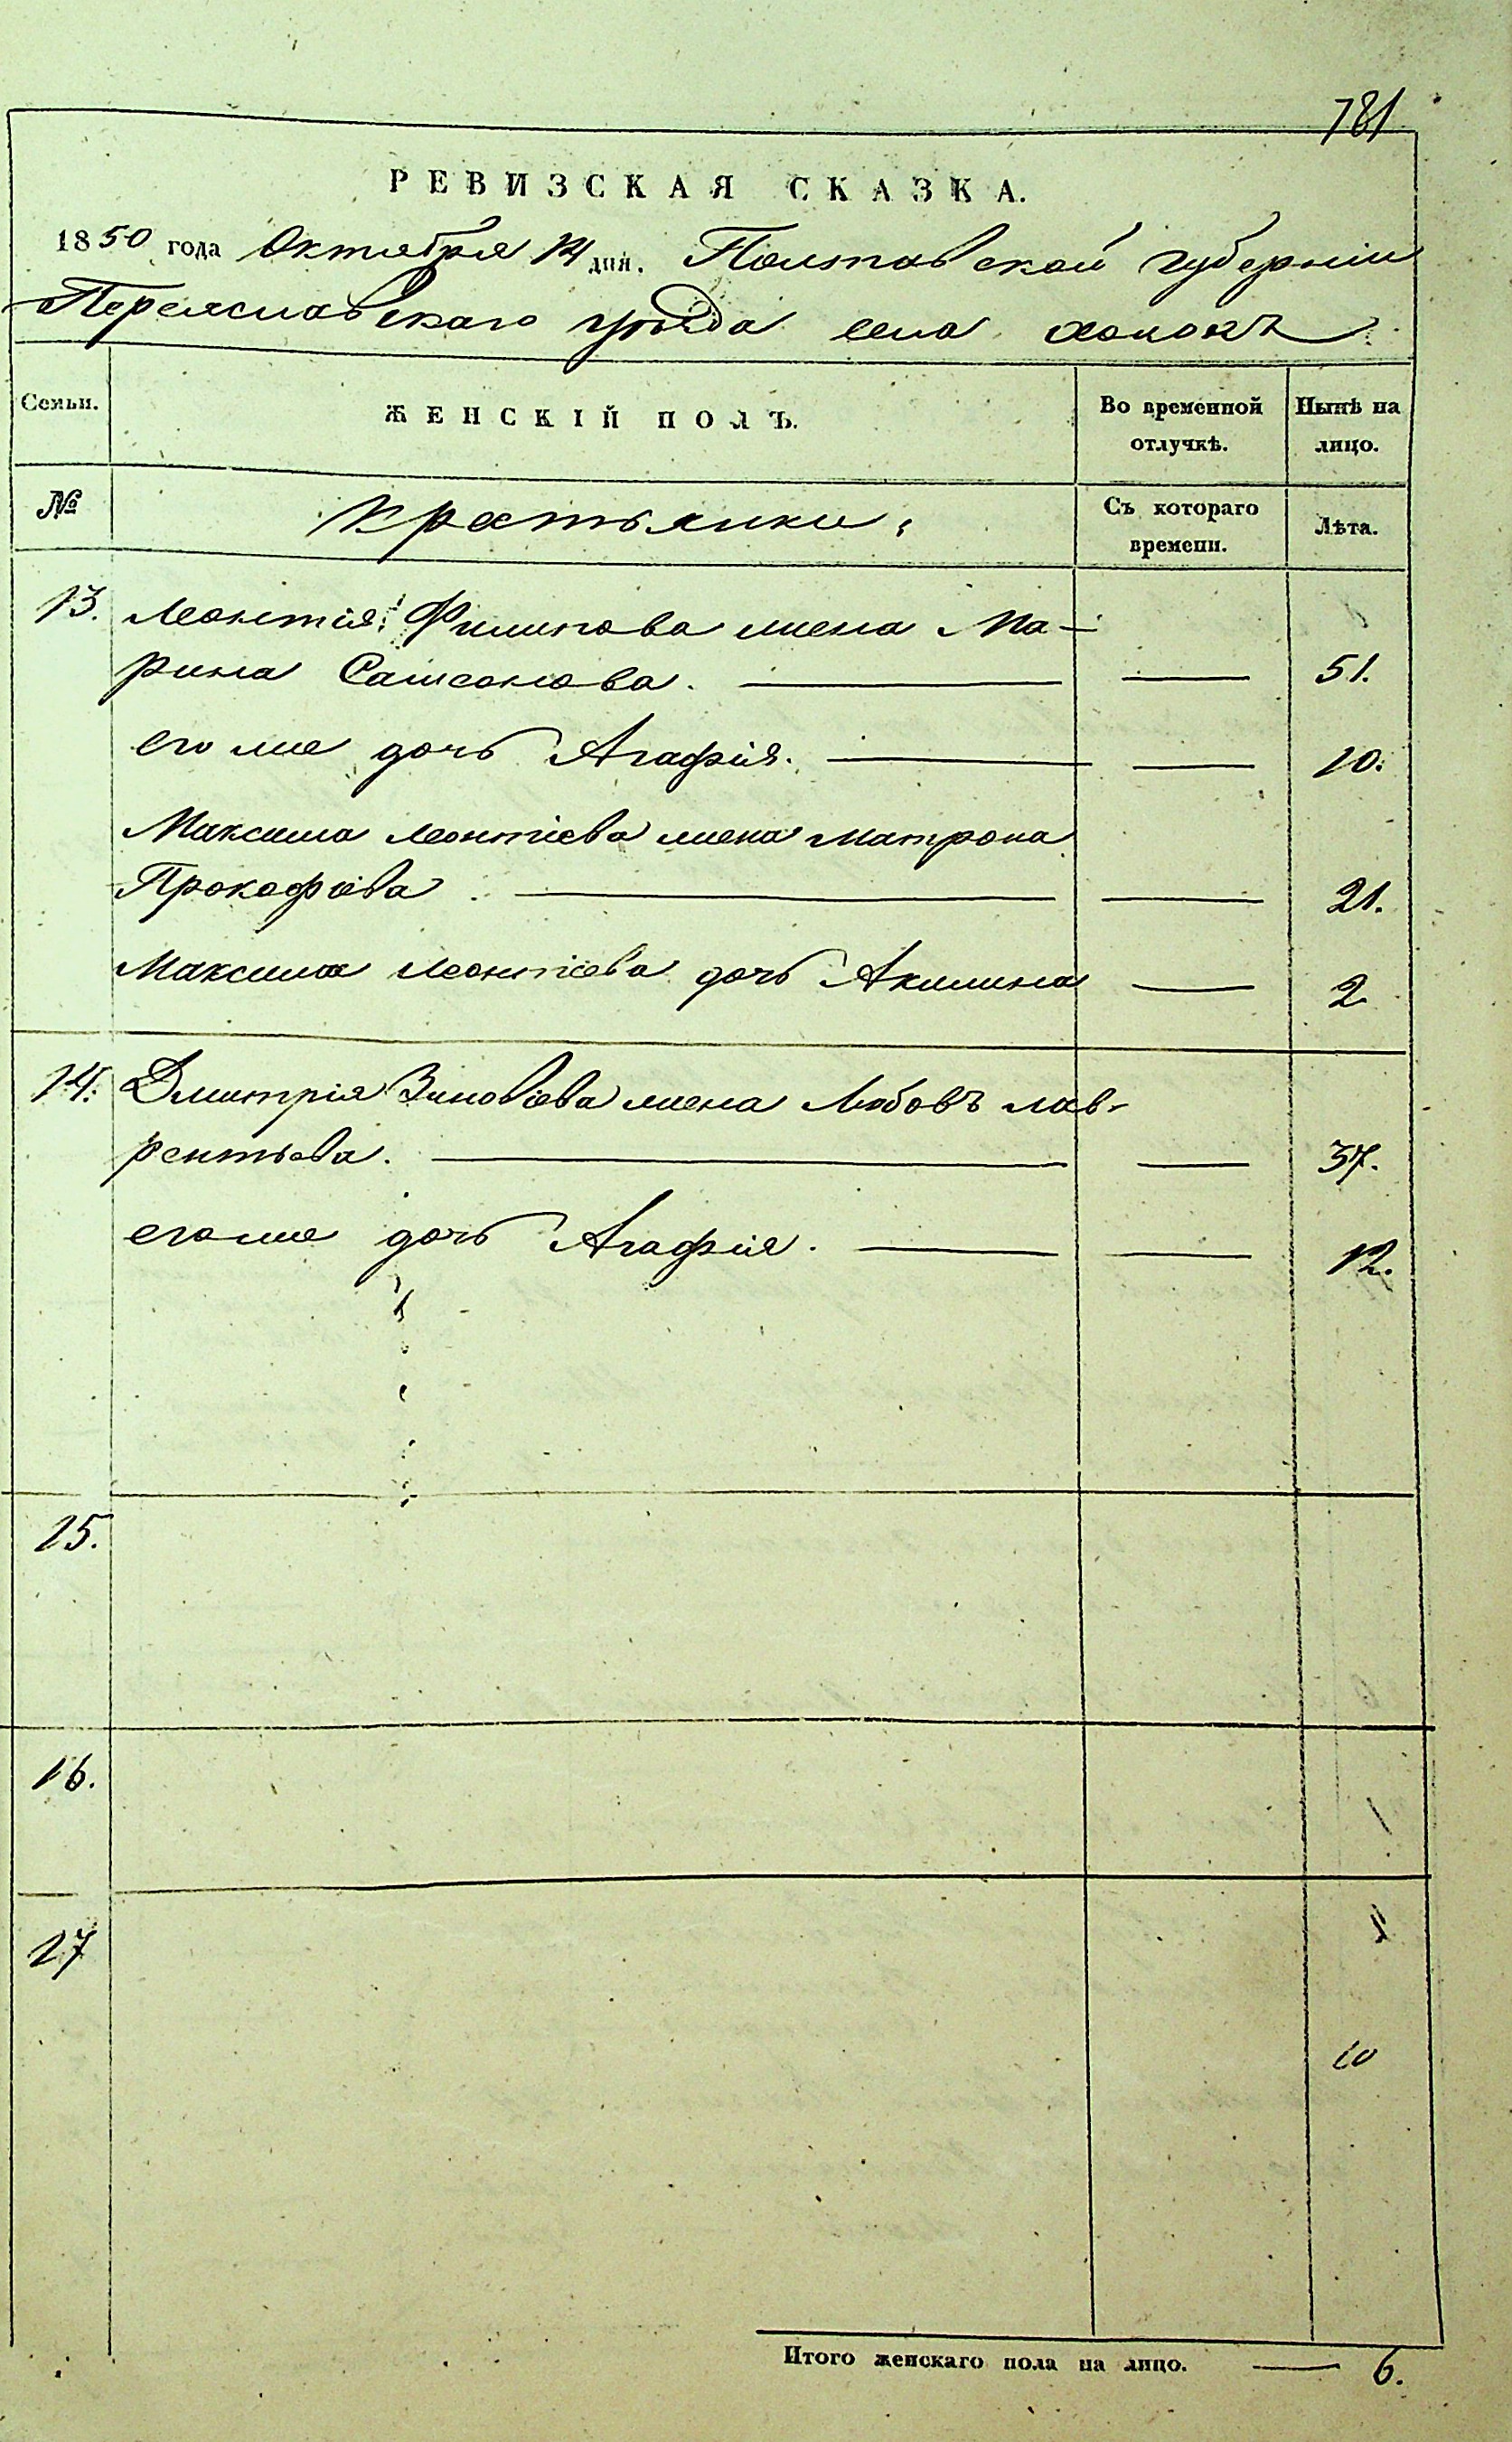 781
РЕВИЗСКАЯ СКАЗКА.
1850 года Октября 14 дня. Полтавской губерніи
Переяславскаго уѣзда села хоцокъ
Семьи. ЖЕНСКІЙ ПОЛЪ. Во временной отлучкѣ. Нынѣ на лицо.
№ Крестьянки. Съ котораго времени. Лѣта.
13. Леонтія Филипова жена Ма-
рина Самсонова. 51.
его же дочь Агафія. 10.
Максима Леонтіева жена Матрона
Прокофіева 21.
Максима Леонтіева дочь Акилина 2
14. Дмитрія Зиновіева жена Любовъ лав-
рентьева. 37.
его же дочь Агафія. 12.
15.
16.
17
Итого женскаго пола на лицо. 6.